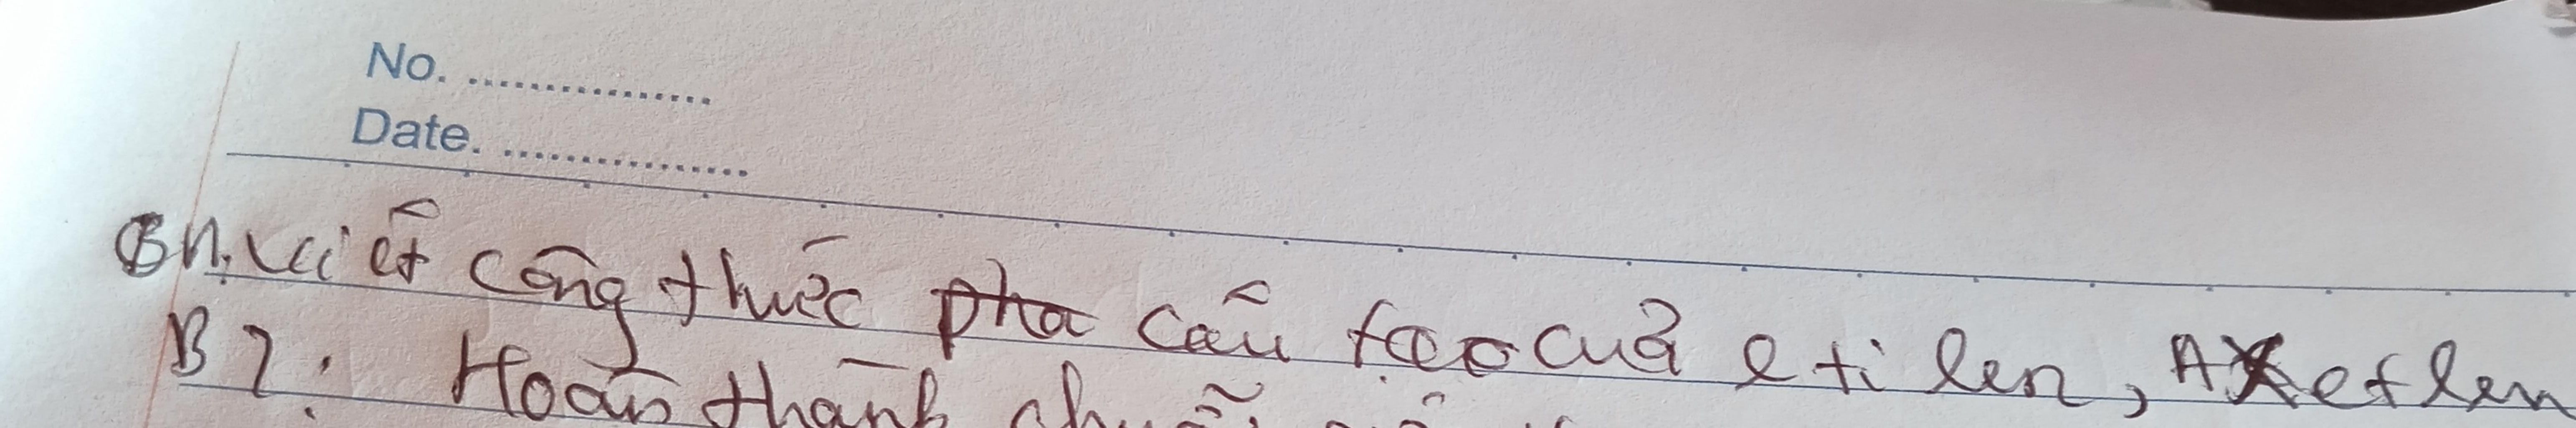 No. ................
Date. ................
B1. Viết công thức pha cấu tạo của etilen, Axetlen
B2: Hoàn thành chuỗi